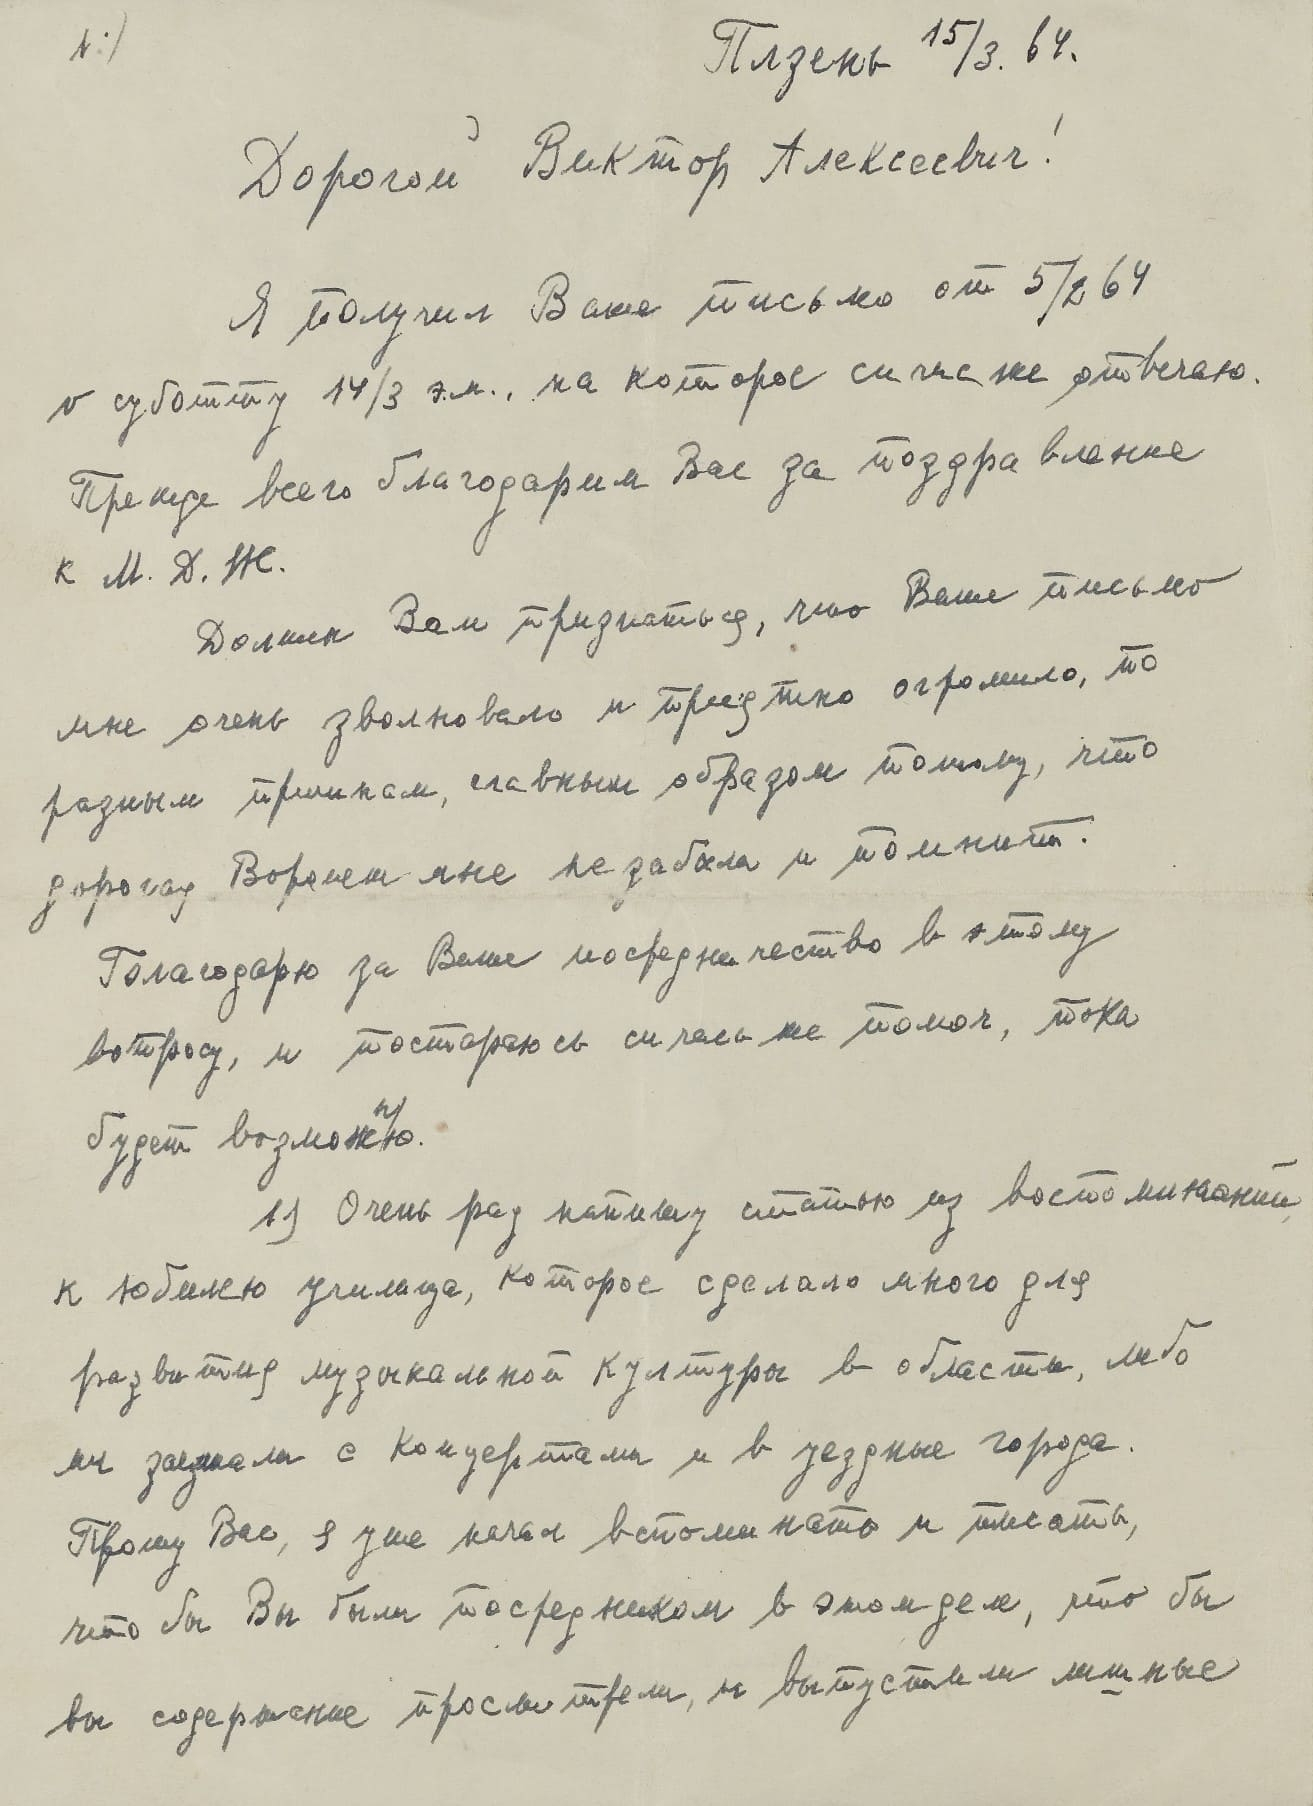 1.)
Плзень 15/3. 64.
Дорогой Виктор Алексеевич!
Я получил Ваше письмо от 5/2 64
в суботту 14/3 э.м., на которое сичас же отвечаю.
Прежде всего благодарим Вас за поздравление
к М. Д. Ж.
Должен Вам признаться, что Ваше письмо
мне очень зволновало и приятно огромило, по
разным причинам, главным образом потому, что
дорогая Воронеж мне не забыла и помнит.
Благодарю за Ваше посредничество в этому
вопросу, и постараюсь сичас же помоч, пока
будет возможно.
1) Очень рад напишу статью из воспоминаний,
к юбилею училища, которое сделало много для
развития музыкальной културы в области, либо
мы заезжали с концертами и в уездные города.
Прошу Вас, я уже начал вспоминать и писать,
что бы Вы были посредником в этом деле, что бы
вы содержение просмотрели, и выпустили лишные